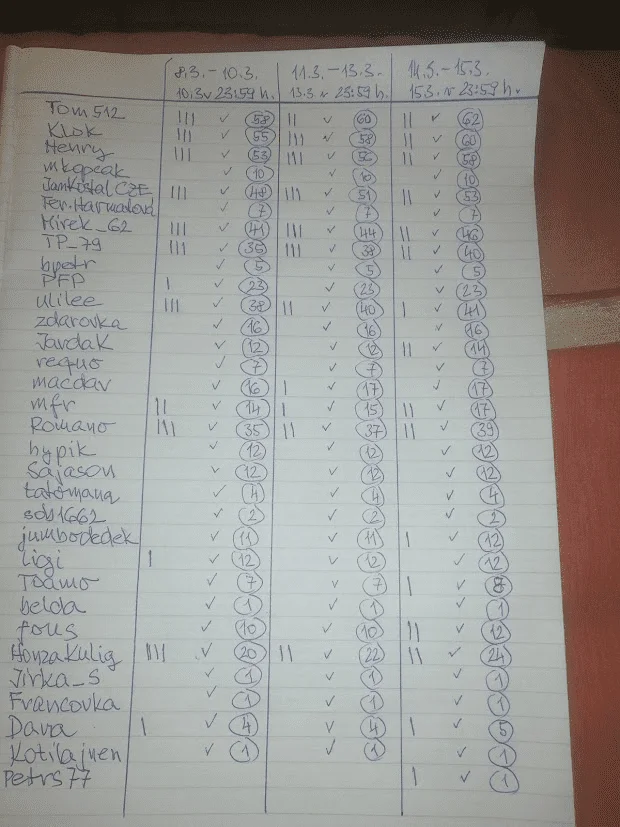 8.3. - 10.3. 11.3. - 13.3. 14.3. - 15.3.
10.3. v 23:59 h. 13.3 v 23:59 h. 15.3. v 23:59 h.
Tom512 III ✓ 58 II ✓ 60 II ✓ 62
Klok III ✓ 55 III ✓ 58 II ✓ 60
Henry III ✓ 53 III ✓ 56 II ✓ 58
mkopcak ✓ 10 ✓ 10 ✓ 10
JanKostalCZE III ✓ 48 III ✓ 51 II ✓ 53
Fer.Harmadova ✓ 7 ✓ 7 ✓ 7
Mirek_62 III ✓ 41 III ✓ 44 II ✓ 46
TP_79 III ✓ 35 III ✓ 38 II ✓ 40
bpetr ✓ 5 ✓ 5 ✓ 5
PFP I ✓ 23 ✓ 23 ✓ 23
ulilee III ✓ 38 II ✓ 40 I ✓ 41
zdarovka ✓ 16 ✓ 16 ✓ 16
JardaK ✓ 12 ✓ 12 II ✓ 14
requo ✓ 7 ✓ 7 ✓ 7
macdav ✓ 16 I ✓ 17 ✓ 17
mfr II ✓ 14 I ✓ 15 II ✓ 17
Romano III ✓ 35 II ✓ 37 II ✓ 39
hypik ✓ 12 ✓ 12 ✓ 12
Sajason ✓ 12 ✓ 12 ✓ 12
tatomana ✓ 4 ✓ 4 ✓ 4
sds1662 ✓ 2 ✓ 2 ✓ 2
jumbodedek ✓ 11 ✓ 11 I ✓ 12
ligi I ✓ 12 ✓ 12 ✓ 12
Toamo ✓ 7 ✓ 7 I ✓ 8
belda ✓ 1 ✓ 1 ✓ 1
fous ✓ 10 ✓ 10 II ✓ 12
HonzaKulig III ✓ 20 II ✓ 22 II ✓ 24
Jirka_S ✓ 1 ✓ 1 ✓ 1
Francovka ✓ 1 ✓ 1 ✓ 1
Dara I ✓ 4 ✓ 4 I ✓ 5
Kotilajnen ✓ 1 ✓ 1 ✓ 1
Petrs77 I ✓ 1